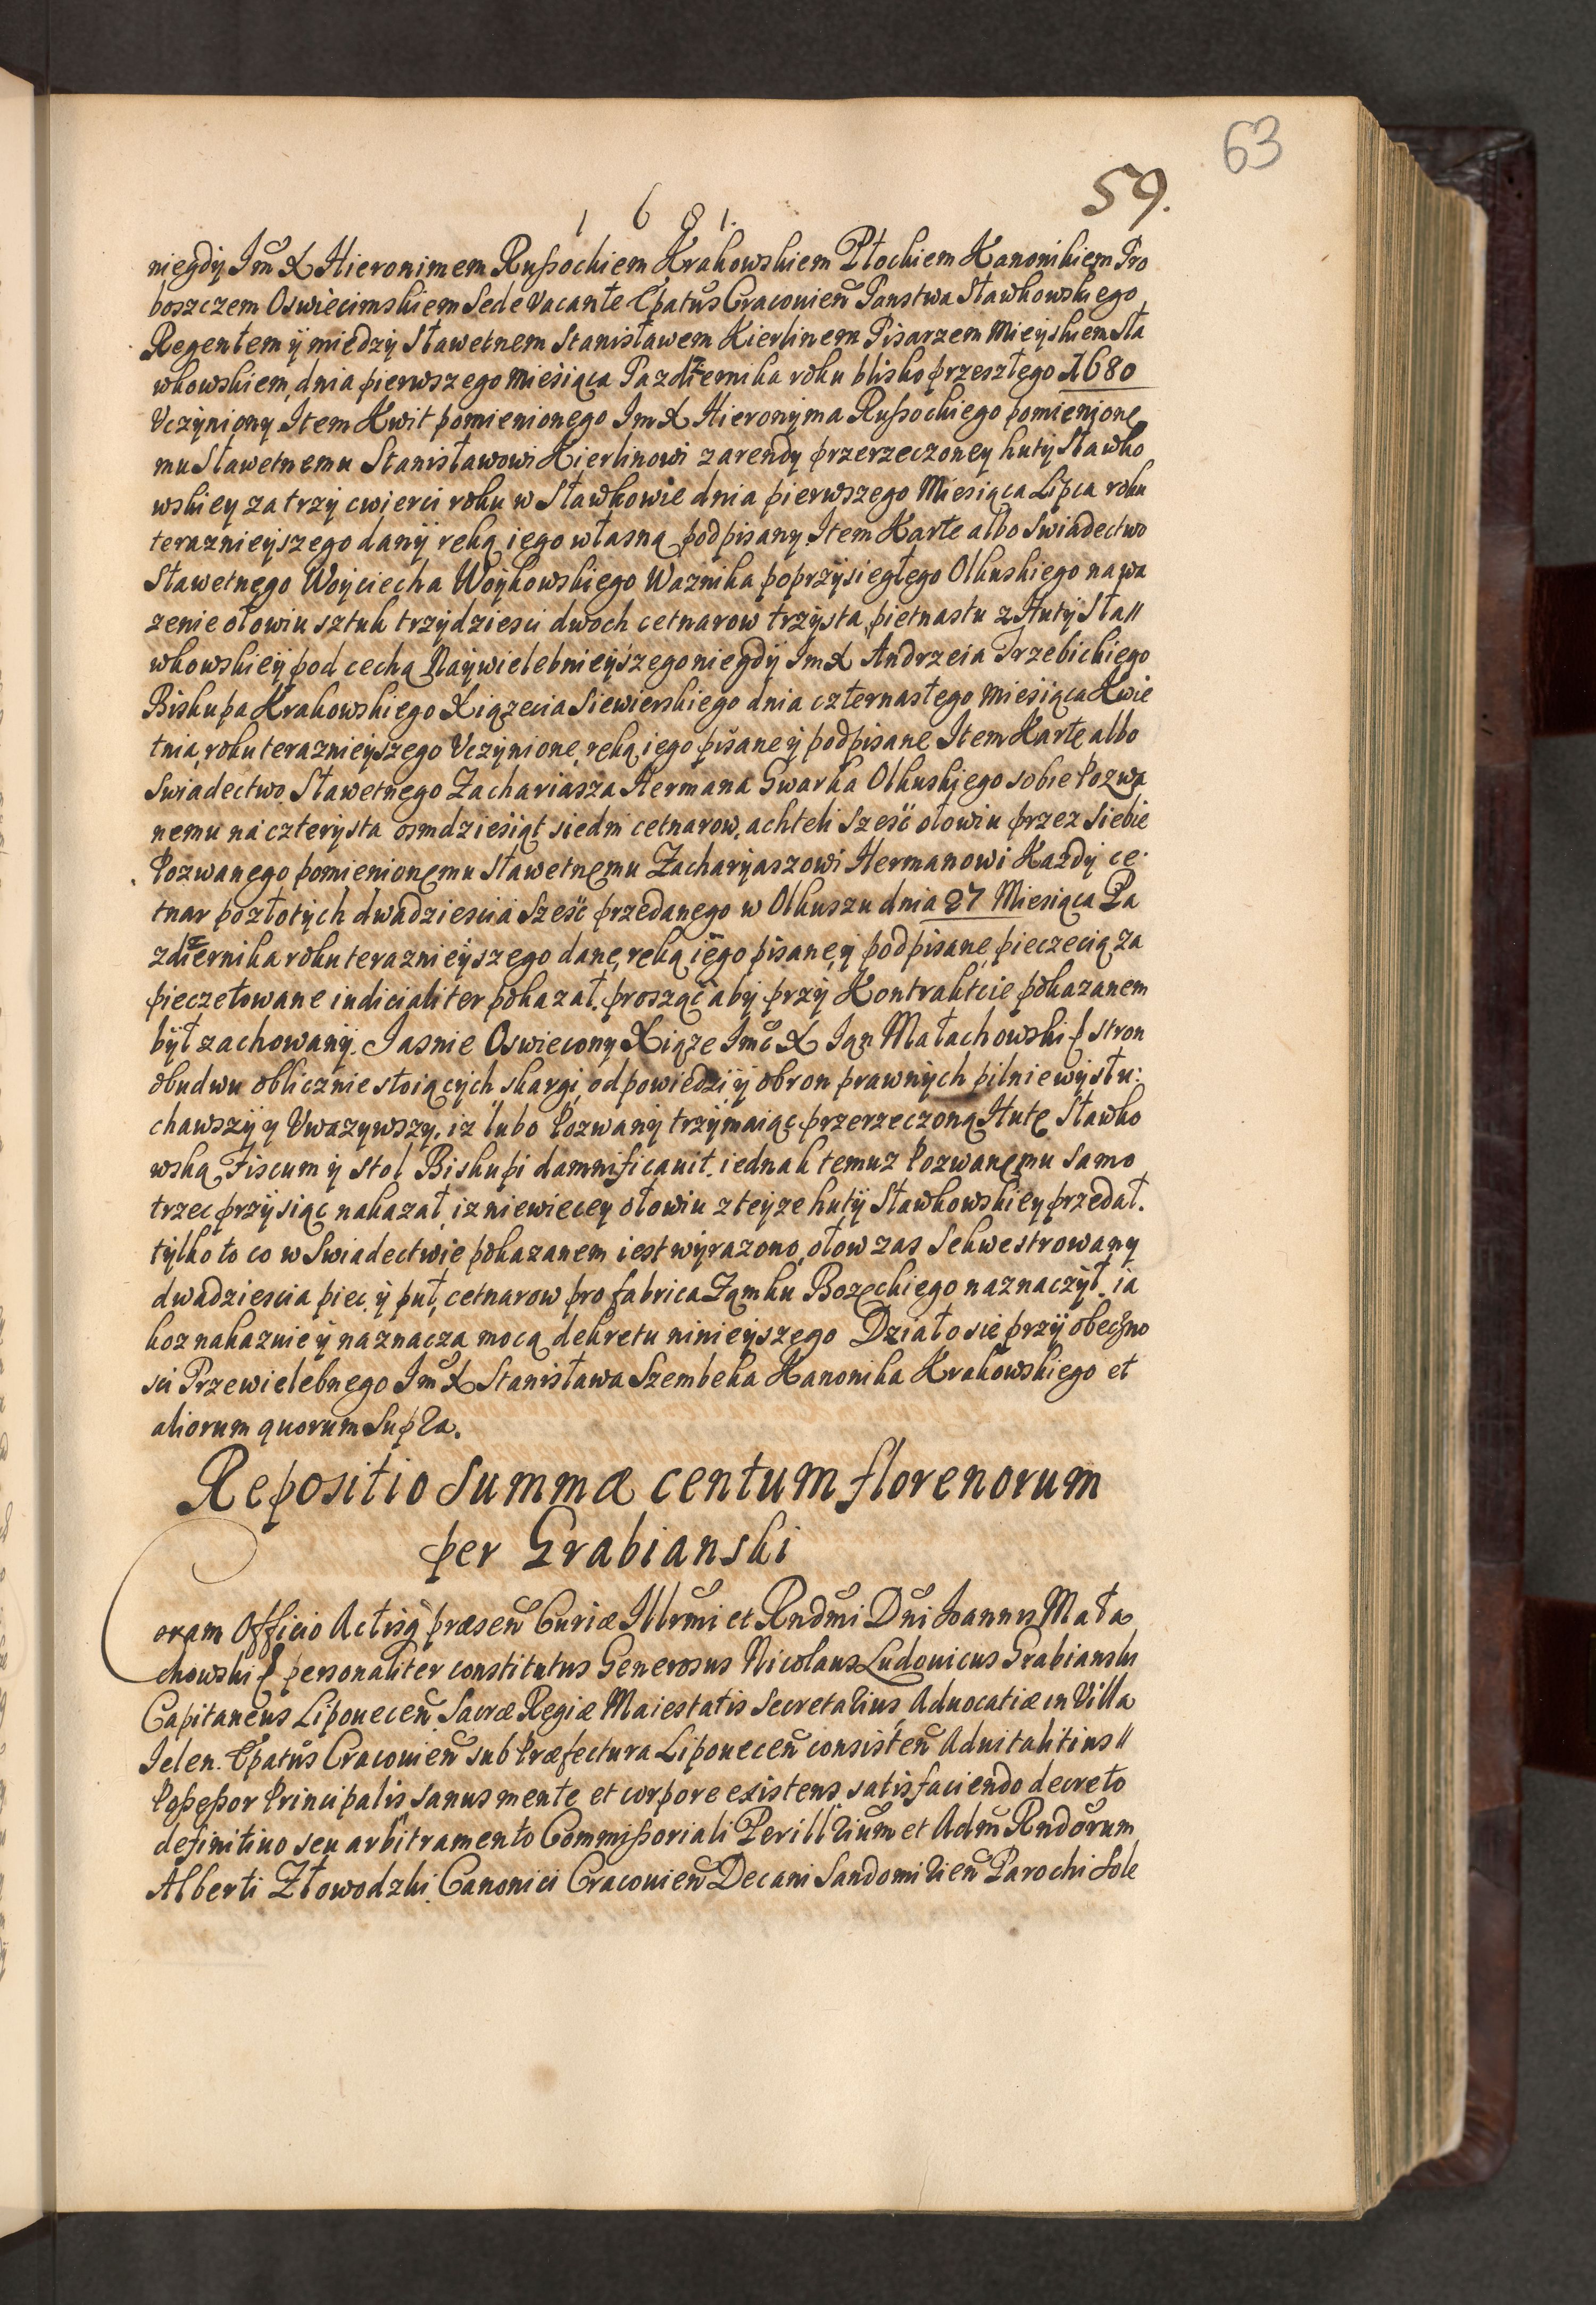 63
59.
1 6 8 1.
niegdÿ Im̃ X Hieronimem Rußochiem Krakowskiem Płockiem Kanonikiem Pro
boszczem Oswiecimskiem Sede Vacante Epatũs Cracouień Panstwa Sławkowskiego
Regentem ÿ miedzÿ Sławetnem Stanisławem Kierlinem Pisarzem Mieÿskiem Sła
wkowskiem, dnia pierwszego Miesiąca Pazdziernika roku blisko przeszłego 1680
Vczÿniony Item Kwit pomienionego Im X Hieronÿma Rußochiego pomienione
mu Sławetnemu Stanisławowi Kierlinowi z arendÿ przerzeczoneÿ hutÿ Sławko
wskieÿ za trzÿ cwierci roku w Sławkowie dnia pierwszego Miesiąca Lipca roku
terazniejszego danÿ reką iego własną podpisanÿ. Item Karte albo Swiadectwo
Sławetnego Woÿciecha Woÿkowskiego Waznika poprzÿsiegłego Olkuskiego na wa
zenie ołowiu sztuk trzÿdziesci dwoch cetnarow trzÿsta, pietnastu z Hutÿ Sła//
wkowskieÿ pod cechą Naÿwielebnieÿszego niegdÿ Im X Andrzeia Trzebickiego
Biskupa Krakowskiego Xiązecia Siewierskiego dnia czternastego Miesiąca Kwie
tnia, roku teraznieÿszego Vczÿnione, reką iego pisane ÿ podpisane Item Karte albo
Swiadectwo Sławetnego Zachariasza Hermana Gwarka Olkuskiego sobie Pozwa
nemu na czterÿsta osmdziesiąt siedm cetnarow, achteli Szesć ołowiu przez Siebie
Pozwanego pomienionemu Sławetnemu Zacharÿaszowi Hermanowi Kazdÿ ce
tnar pozłotÿch dwadziescia Szesć przedanego w Olkuszu dnia 27 Miesiąca Pa
zdziernika roku teraznieÿszego dane, reką iego pisane, ÿ podpisane, pieczecią za
pieczetowane iudicialiter pokazał. prosząc abÿ przÿ Kontraktcie pokazanem
bÿł zachowanÿ. Jasnie Oswiecony Xiąze Imc X Jan Małachowski ꝑ stron
obudwu oblicznie stoiącÿch skargi, odpowiedzi, ÿ obron prawnÿch pilnie wÿsłu:
chawszÿ ÿ Vwazÿwszÿ, iz lubo Pozwanÿ trzÿmaiąc przerzeczoną Hute Sławko
wską Fiscum ÿ stoł Biskupi damnificauit. iednak temuz Pozwanemu Samo
trzec przÿsiąc nakazał, iz niewieceÿ ołowiu z teÿze hutÿ Sławkowskieÿ przedał.
tÿlko to co w Swiadectwie pokazanem iest wÿrazono, ołow zas Sekwestrowanÿ
dwadziescia piec, ÿ puł, cetnarow pro fabrica Zamku Bozeckiego naznaczÿł. ia
koz nakazuie ÿ naznacza mocą dekretu ninieÿszego Działo sie przÿ obecno
sci Przewielebnego Im̃ X Stanisława Szembeka Kanonika Krakowskiego et
aliorum quorum Supra.
Repositio Summæ centum florenorum
per Grabianski
Coram Officio Actisq́ præseń Curiæ Illr̃mi et Rnd̃mi Dñi Joannis Mała
chowski ꝑ personaliter constitutus Generosus Nicolaus Ludouicus Grabianski
Capitaneus Lipoueceń Sacræ Regiæ Maiestatis Secretarius, Aduocatiæ in Villa
Jelen. Epatũs Cracouień sub Præfectura Lipouecen consisteń Aduitalitius//
Poßeßor Principalis, Sanus mente et corpore existens satisfaciendo decreto
definitiuo seu arbitramento Commißoriali Perillrium et Adm̃ Rndõrum
Alberti Złowodzki, Canonici Cracouień Decani Sandomirień Parochi Sole